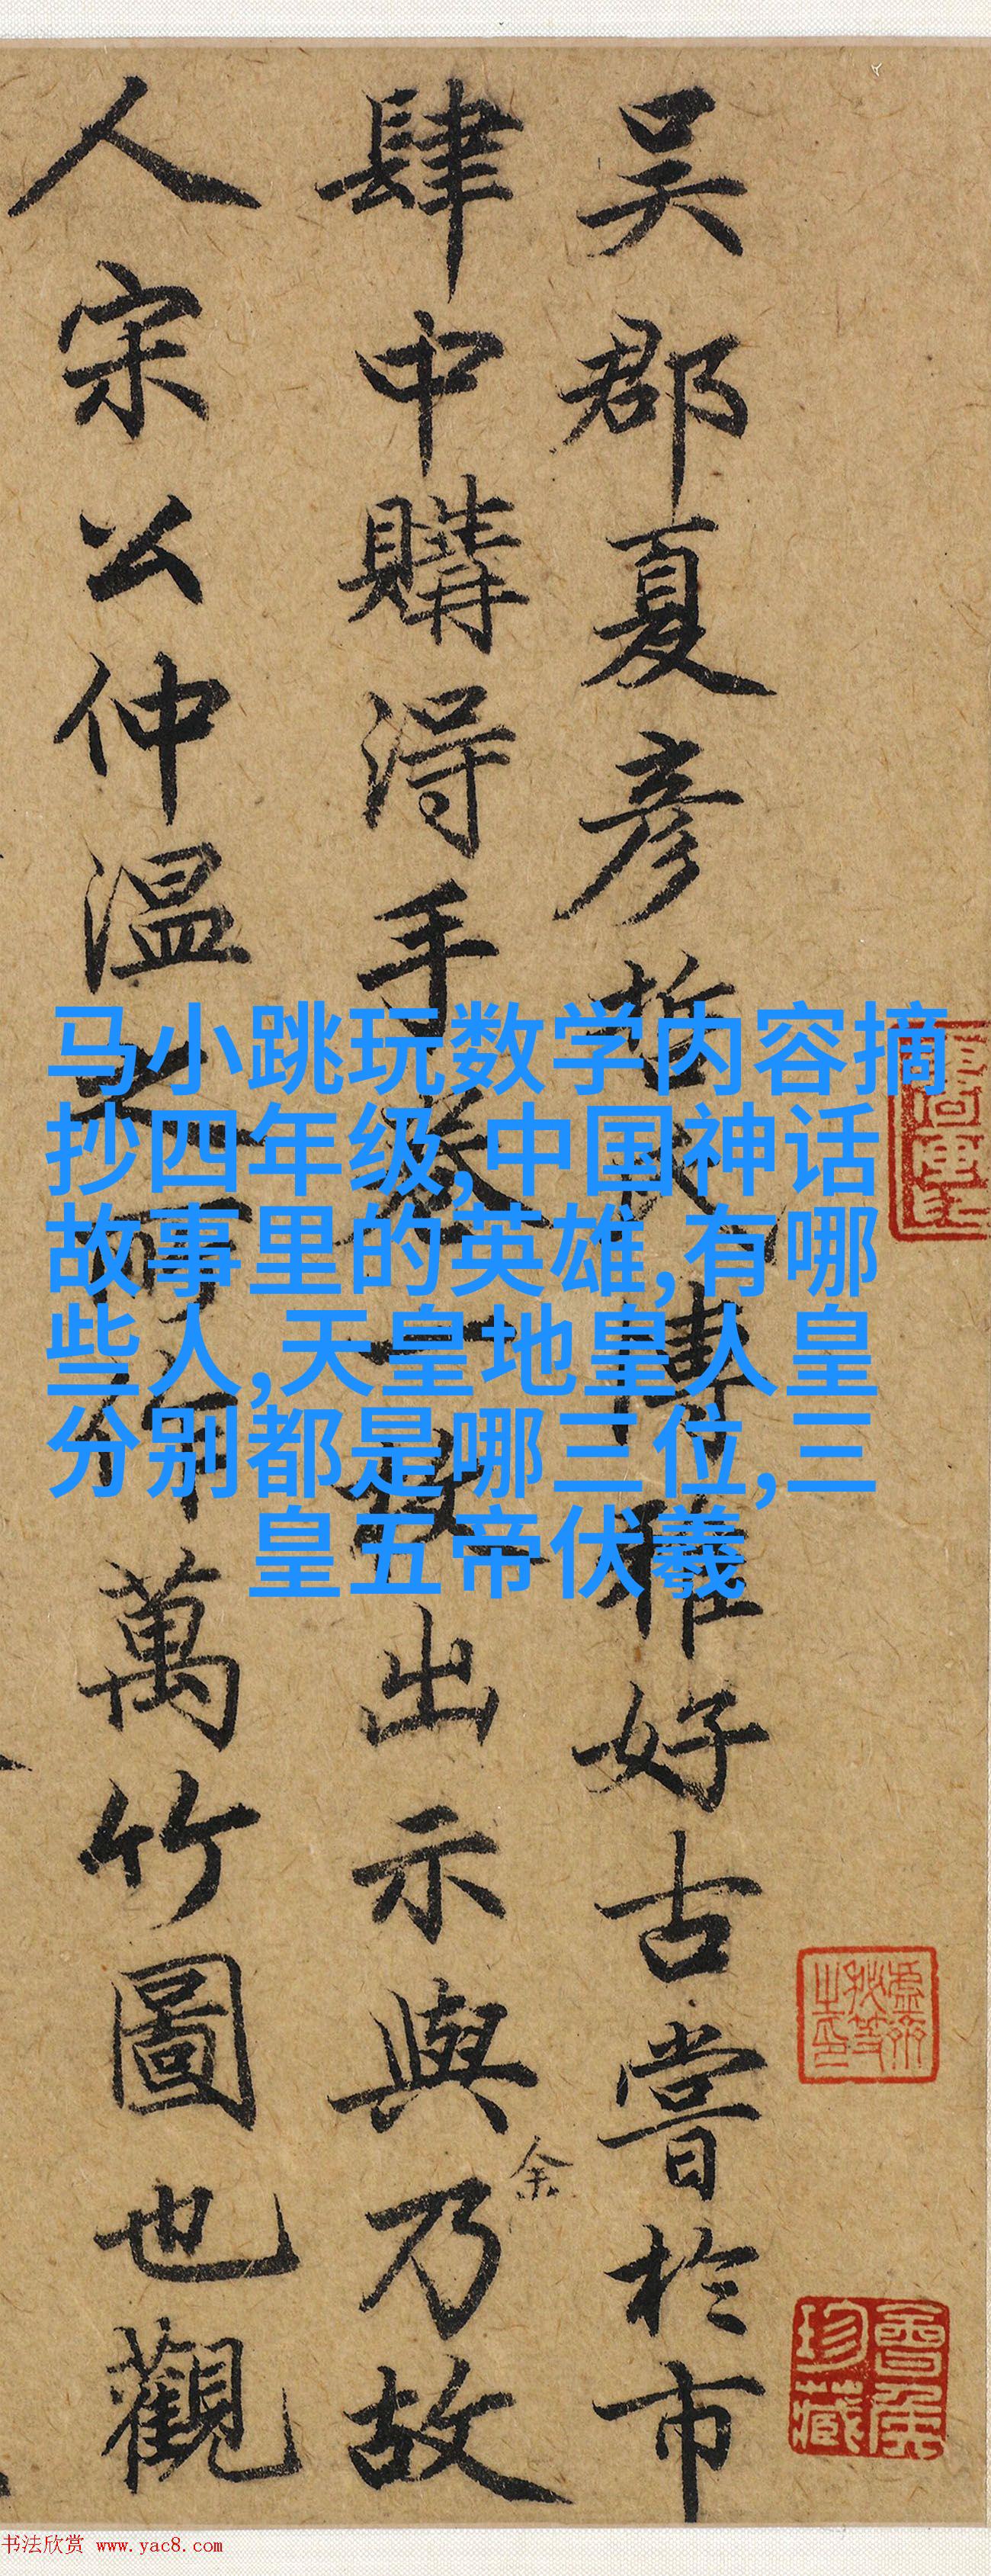 马小跳玩数学内容摘
抄四年级,中国神话
故事里的英雄,有哪
些人,天皇地皇人皇
分别都是哪三位,三
皇五帝伏羲
吴郡夏彦哲博雅好古嘗於市
肆中購得手卷一出示與余乃故
人宋公仲温之所作萬竹圖也觀
珍藏
书法欣赏 www.yac8.com